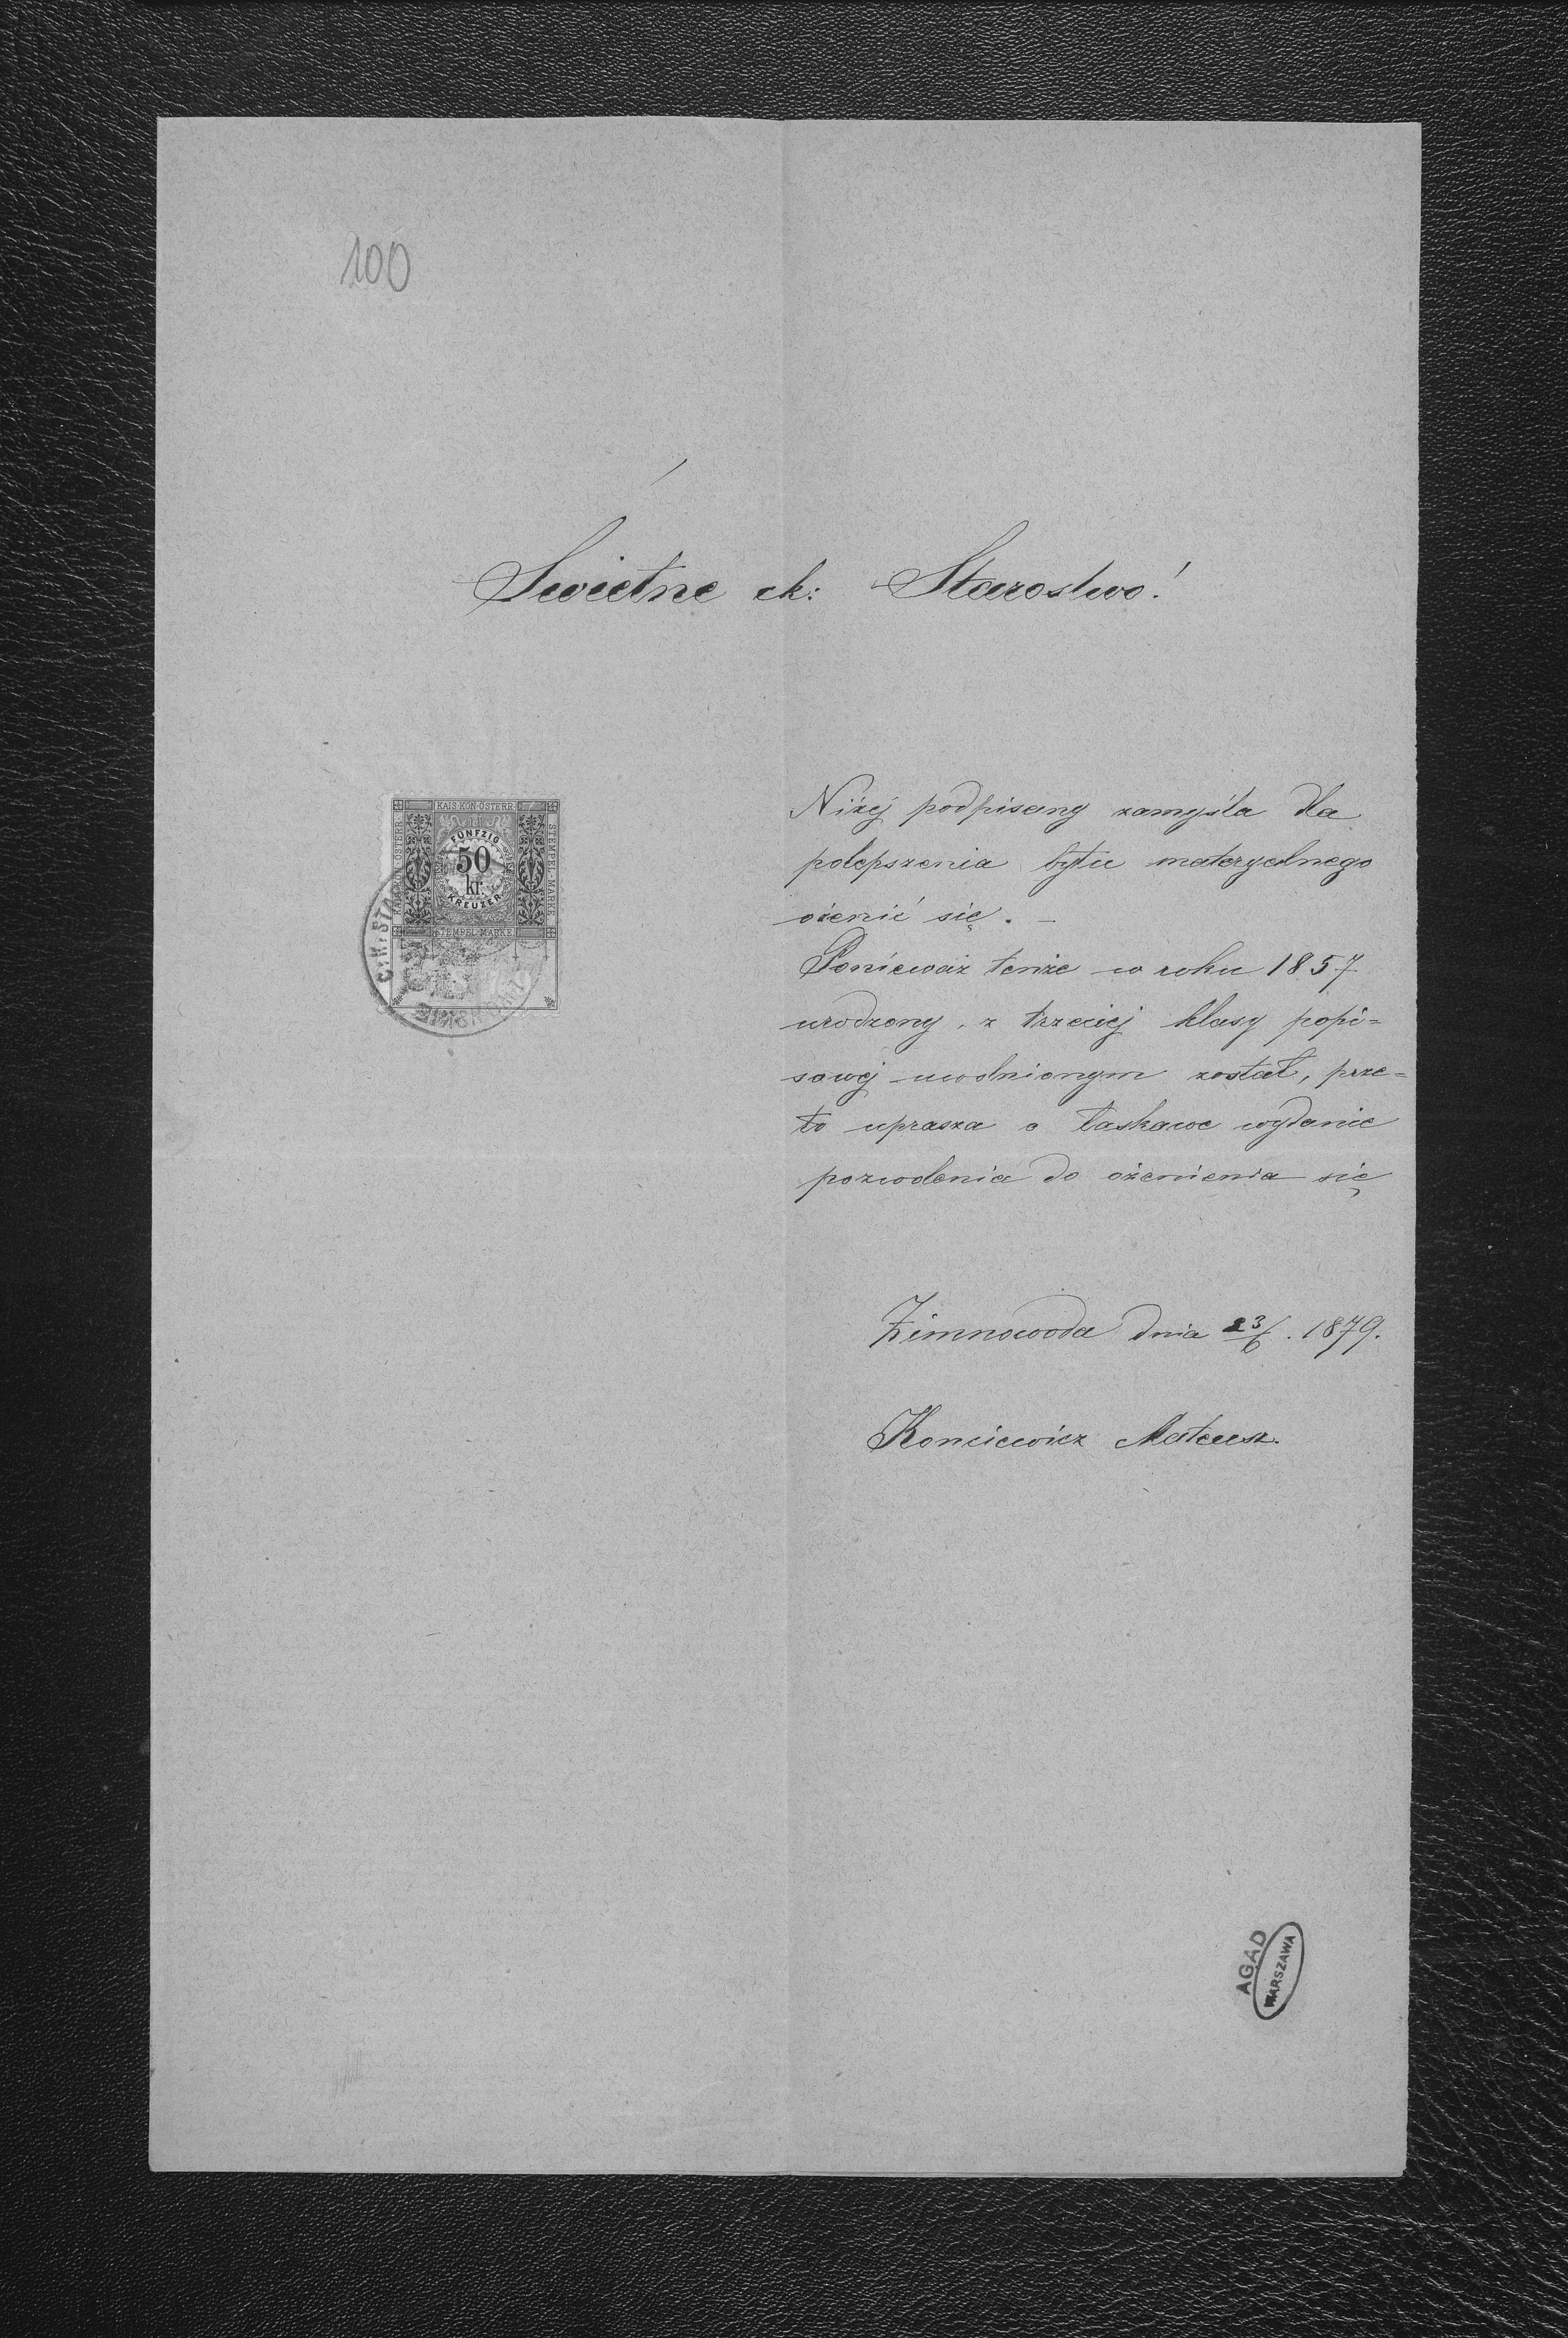 100
Świetne ck: Starostwo!
KAIS·KÖN·ÖSTERR·
STEMPEL-MARKE
FÜNFZIG
50
kr.
KREUZER
STEMPEL-MARKE
C:K: STA
Niżej podpisany zamyśla dla
polepszenia bytu materyalnego
ożenić się. –
Ponieważ tenże w roku 1857
urodzony, z trzeciej klasy popi=
sowej uwolnionym został, prze=
to uprasza o łaskawe wydanie
pozwolenia do ożenienia się
Zimnowoda dnia 23/6. 1879.
Konciewicz Mateusz.
AGAD
WARSZAWA